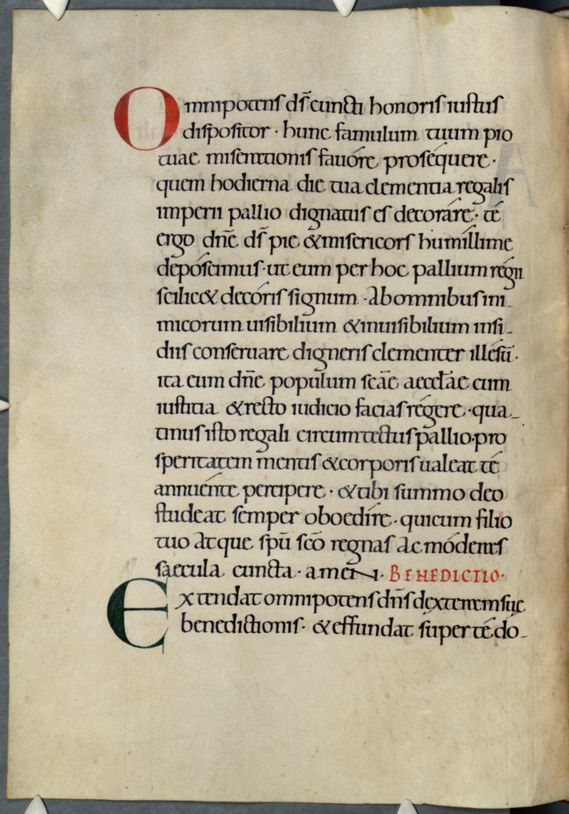 Omnipotens ds̄ cuncti honoris iustus
dispositor · hunc famulum tuum pio
tuae miserationis favóre proséquere ·
quem hodierna die tua clementia regalis
imperii pallio dignatus es decoráre · té
ergo dn̄e ds̄ pie & misericors humillime
depóscimus · ut eum per hoc pallium régni
scilic& decóris signum · Ab omnibus ini-
micorum uisibilium & inuisibilium insi-
diis conseruare digneris clementer illésū ·
ita cum dn̄e populum sc̄ae aeccl̄ae cum
iustitia & recto iudicio facias régere · qua-
tinus isto regali circumtectus pallio · pro
speritatem mentis & corporis ualeat té
annuénte percipere · & tibi summo deo
studeat semper oboedíre · qui cum filio
tuo atque sp̄u sc̄o regnas ac módens
saecula cuncta · amen · BENEDICTIO ·
Extendat omnipotens dn̄s dexteram suę
benedictionis · & effundat super té do-